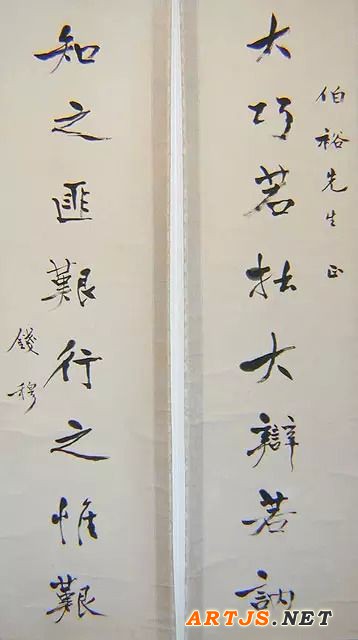 伯裕先生正
大巧若拙大辯若訥
知之匪艱行之惟艱
錢穆
ARTJS.NET